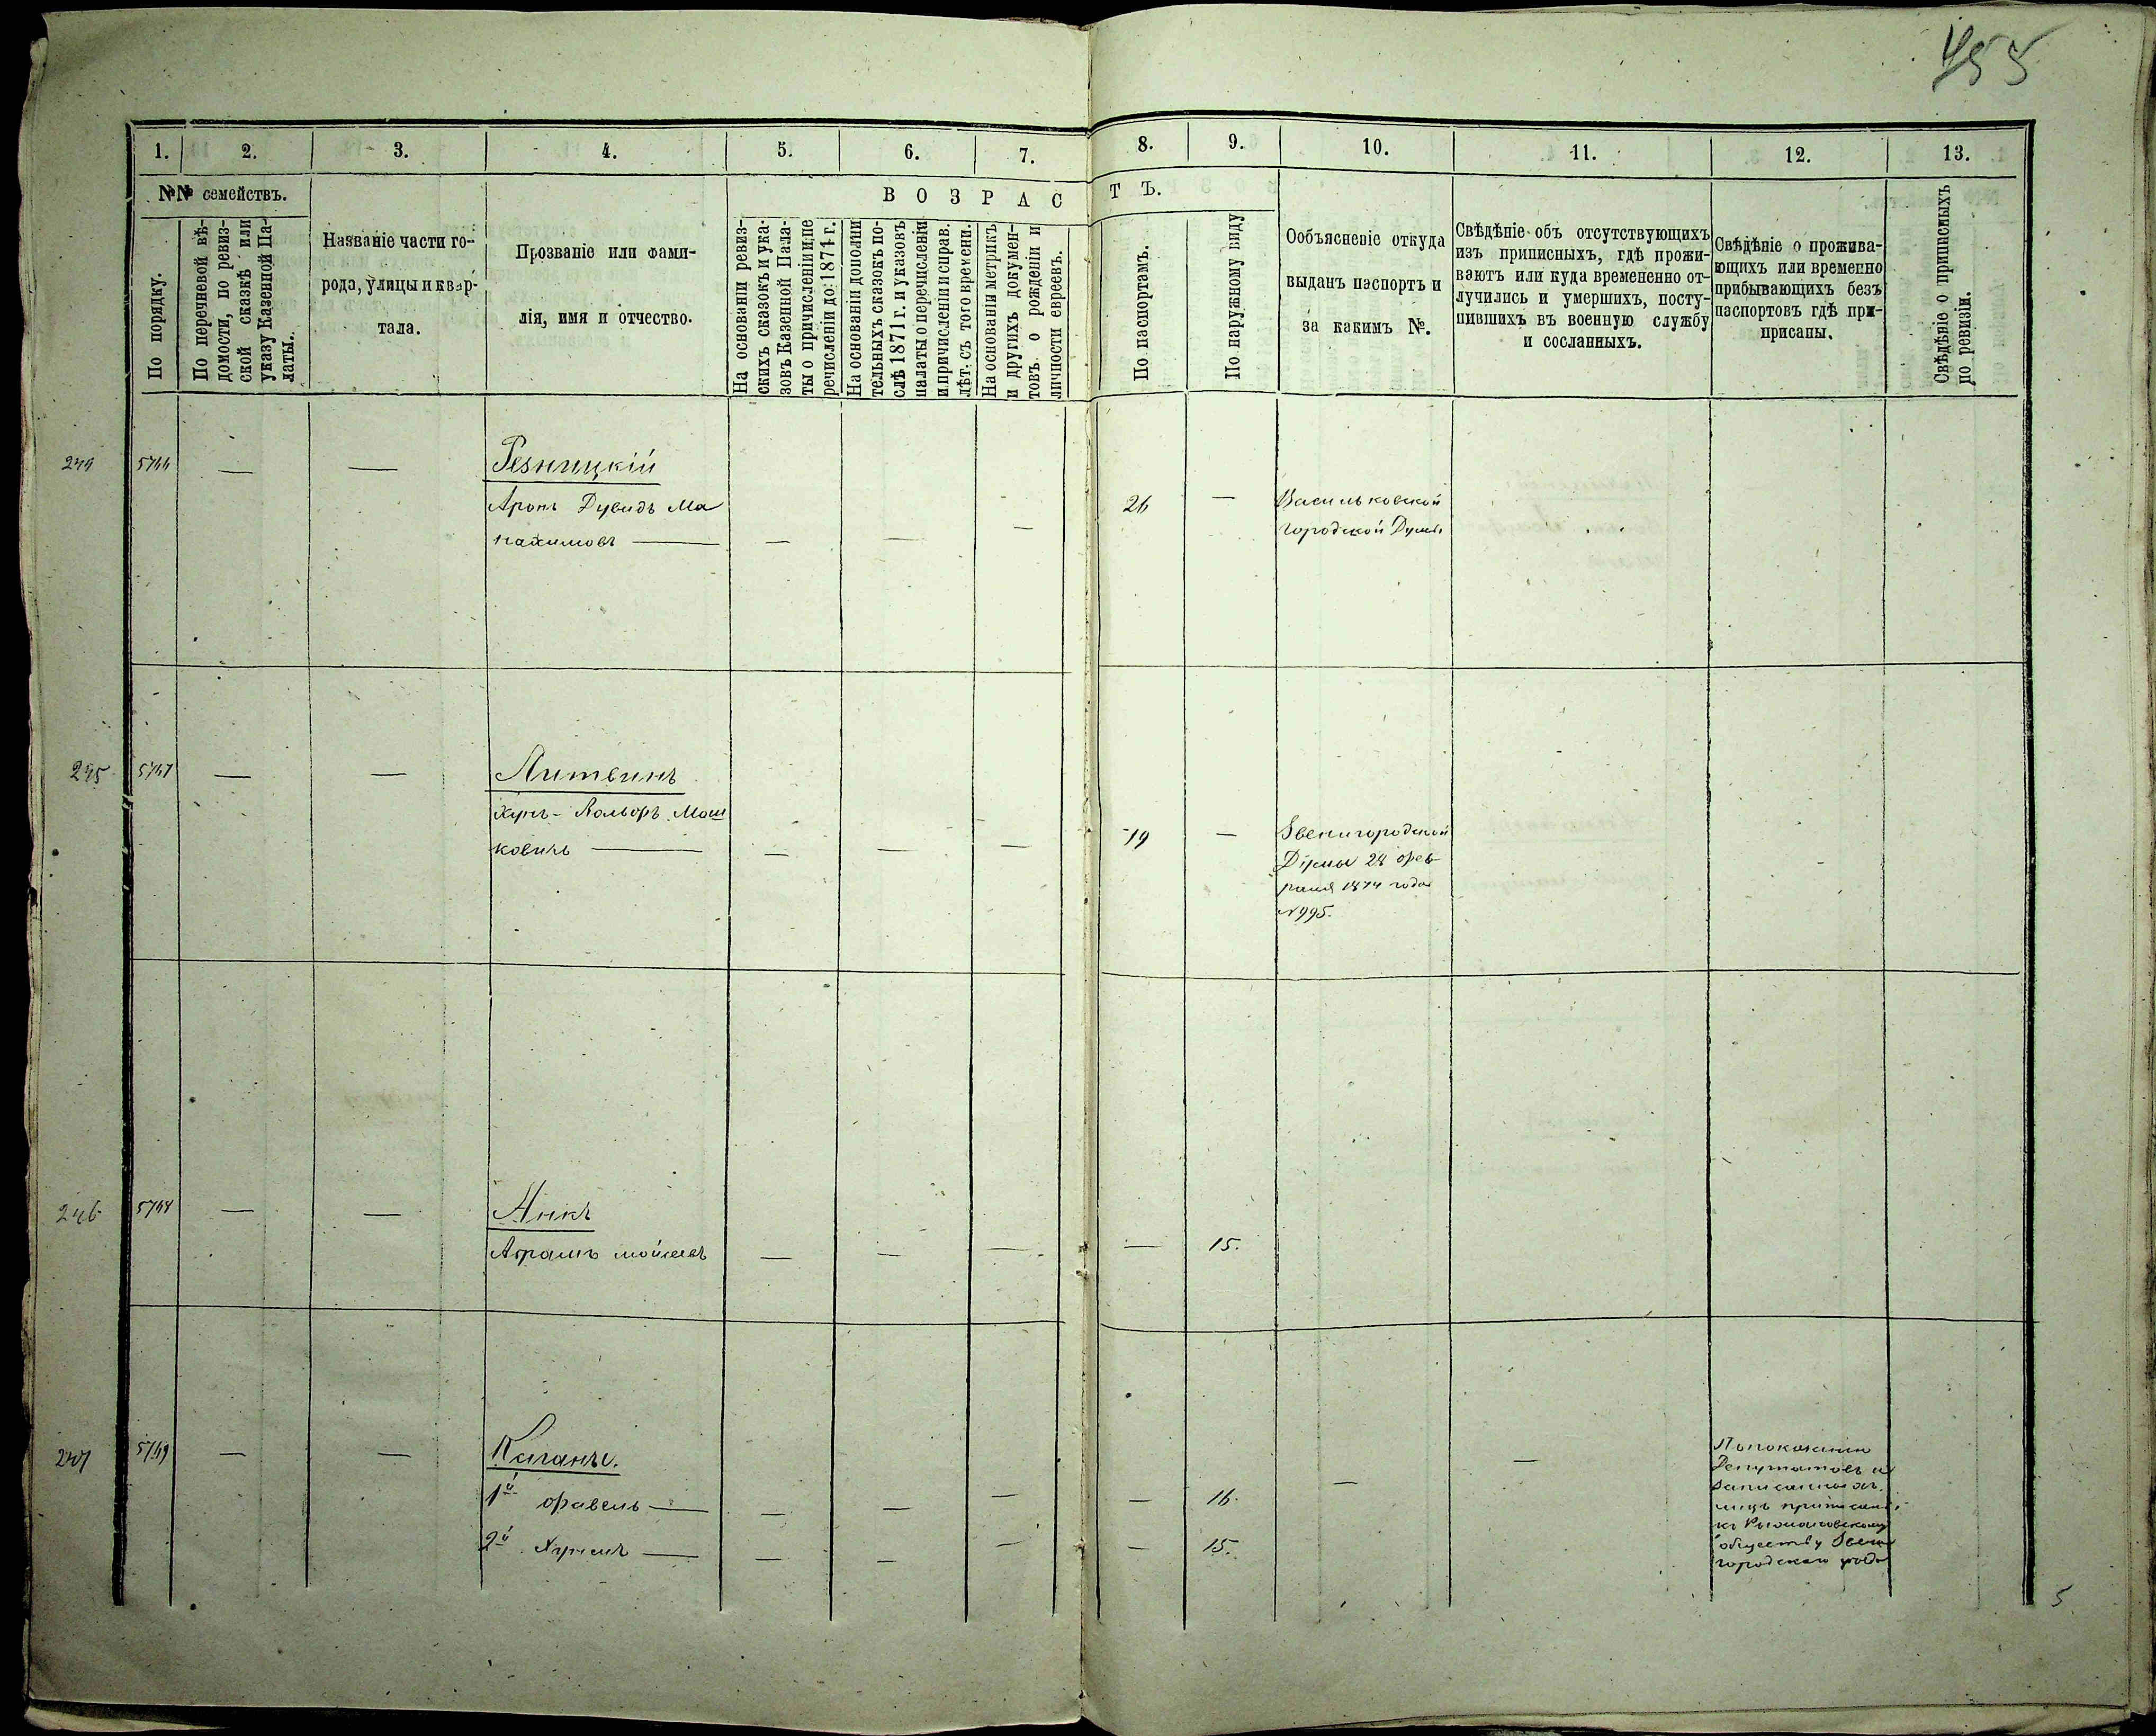 455
1. 2. 3. 4. 5. 6. 7. 8. 9. 10. 11. 12. 13.
№№ семействъ.
По порядку.
По перечневой вѣ-
домости, по ревиз-
ской сказкѣ или
указу Казенной Па-
латы.
Названіе части го-
рода, улицы и квар-
тала.
Прозваніе или фами-
лія, имя и отчество.
ВОЗРАСТЪ.
На основаніи ревиз-
скихъ сказокъ и ука-
зовъ Казенной Пала-
ты о причисленіи и пе
речисленіи до 1871 г.
На основаніи дополни
тельныхъ сказокъ по-
слѣ 1871 г. и указовъ
палаты о перечисленіи
и причисленіи и справ.
лѣт. съ того времени.
На основаніи метрикъ
и другихъ докумен-
товъ о рожденіи и
личности евреевъ.
По паспортамъ.
По наружному виду
Ообъясненіе откуда
выданъ паспортъ и
за какимъ №.
Свѣдѣніе объ отсутствующихъ
изъ приписныхъ, гдѣ прожи-
ваютъ или куда времененно от-
лучились и умершихъ, посту-
пившихъ въ военную службу
и сосланныхъ.
Свѣдѣніе о прожива-
ющихъ или временно
прибывающихъ безъ
паспортовъ гдѣ при-
приcаны.
Свѣдѣніе о приписныхъ
по ревизіи.
244 — — Резницкій
Аронъ Дувидъ Ма
нахимовъ — — — — 26 — Васильковской
городской Думы
245 5747 — — Литвинъ
Вольфъ Мош
ковичъ — — — — 19 — Звенигородской
Думы 24 фев
раля 1874 года
№995.
246 5748 — — Янкъ
Абрамъ — — — — 15.
247 5749 — — Каганы.
1й — — — — 16. — —
2й — — — — 15.
Депутатовъ и
обществу Звени
городскаго
5